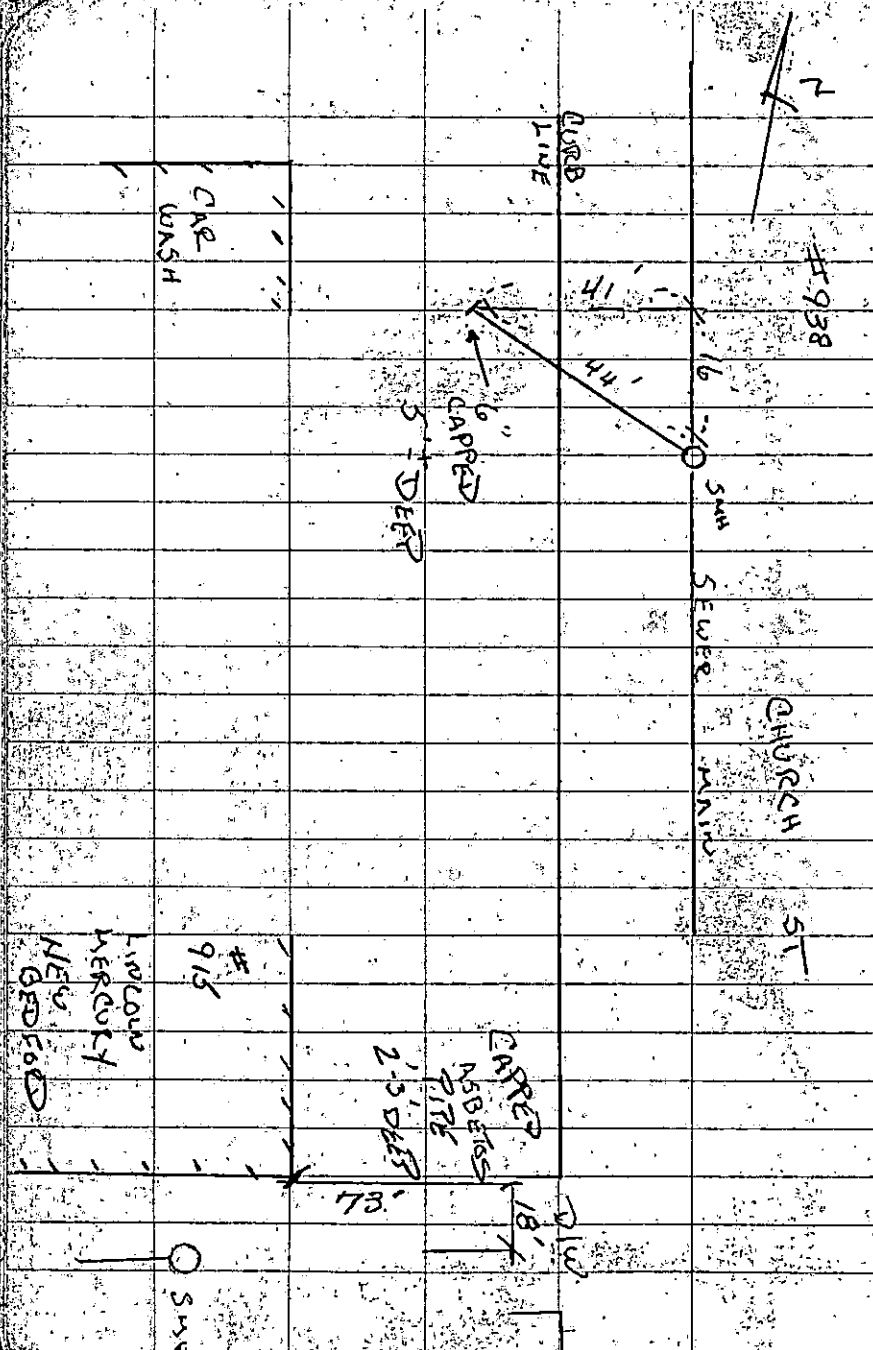 N
#938
CHURCH ST
CURB
LINE
41'
16'
44'
SMH
SEWER MAIN
6"
CAPPED
5'± DEEP
CAR
WASH
#
915
LINCOLN
MERCURY
NEW
BEDFORD
CAPPED
ASBETOS
PITE
2'-3' DEEP
73'
18'
D/W
SMH